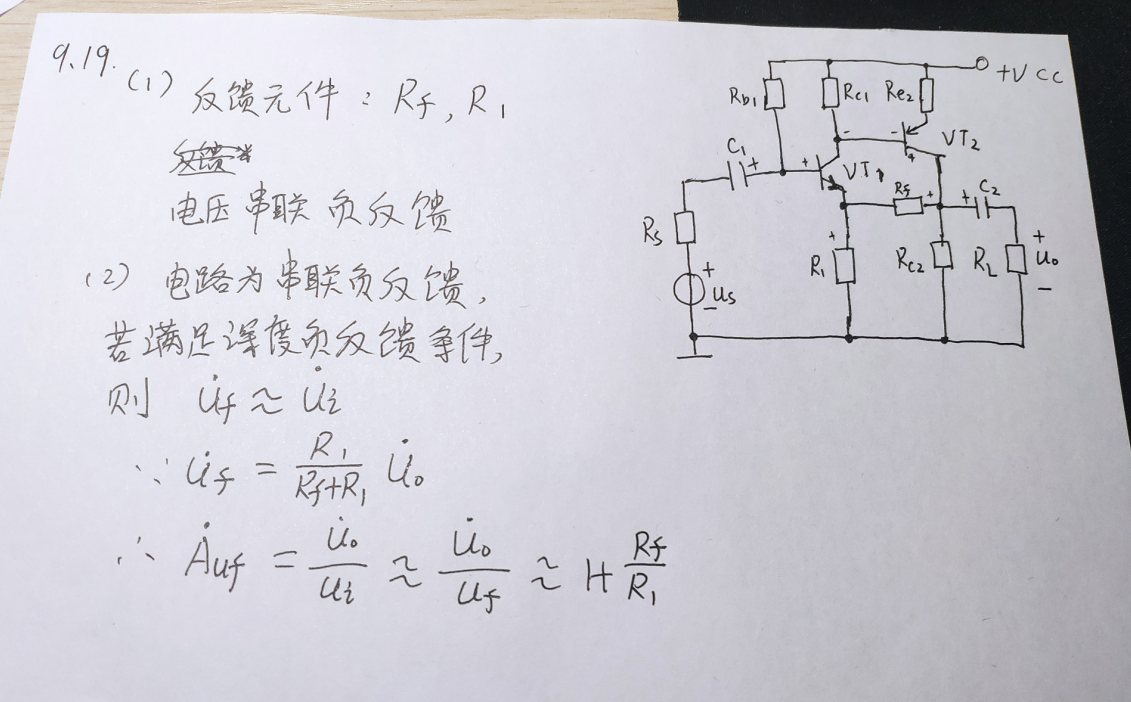 9.19.
(1) 反馈元件：Rf, R1
电压串联负反馈
(2) 电路为串联负反馈,
若满足深度负反馈条件,
则 U̇f ≈ U̇i
∵ U̇f = R1/(Rf+R1) U̇o
∴ Ȧuf = U̇o/Ui ≈ U̇o/Uf ≈ 1+ Rf/R1
+VCC
Rb1
Rc1
Re2
C1
+
+
-
-
+
VT1
VT2
Rf
+
+
C2
Rs
+
us
-
+
R1
Rc2
RL
+
uo
-